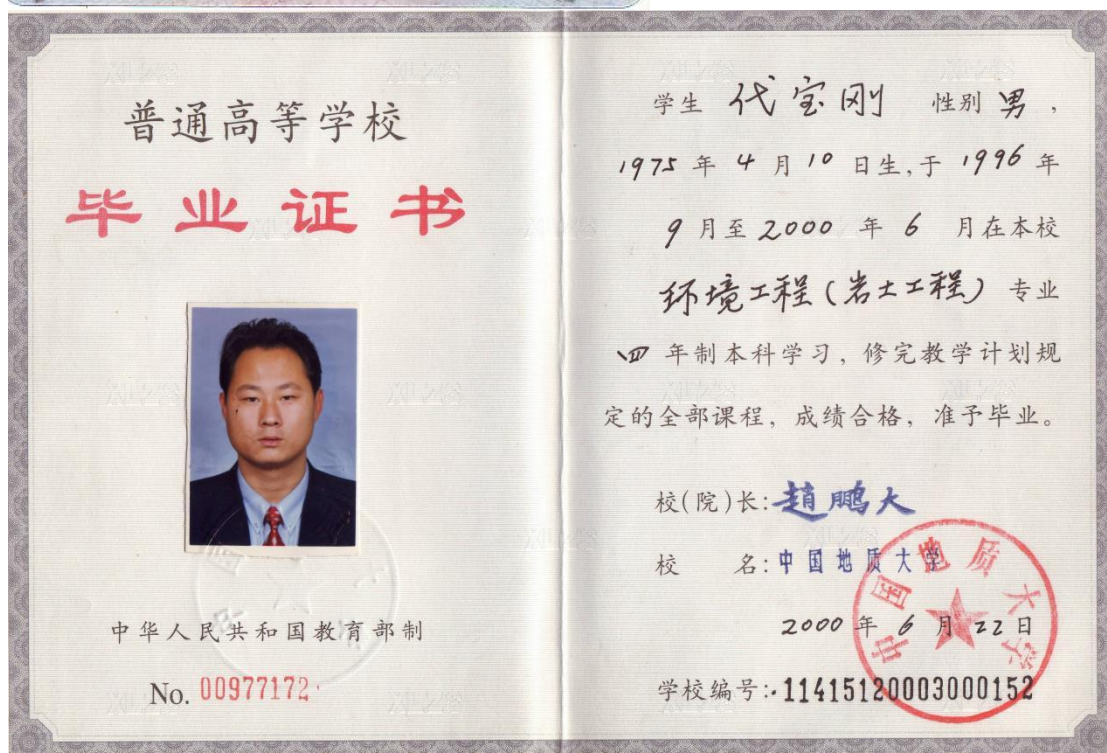 普通高等学校
毕业证书
中华人民共和国教育部制
No. 00977172
学生 代宝刚 性别 男,
1975 年 4 月 10 日生,于 1996 年
9 月至 2000 年 6 月在本校
环境工程(岩土工程) 专业
四 年制本科学习,修完教学计划规
定的全部课程,成绩合格,准予毕业。
校(院)长:趙鹏大
校 名:中国地质大学
2000 年 6 月 22 日
学校编号:11415120003000152
中国地质大学